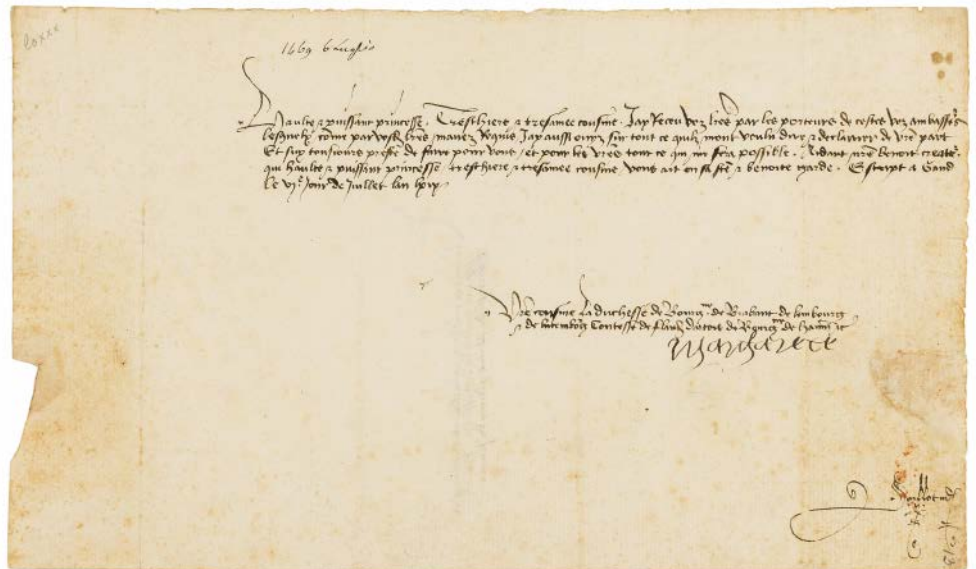 1469 6 Luglio
Haulte & puissant princesse. Treschiere & tresamee cousine. Jay Receu voz lrēs par les porteurs de cestes voz ambassrs
lesquelz come par vosd lrēs mavez Requis Jay aussi oyz sur tout ce quilz mont voulu dire & declairer de vrē part
Et suy tousiours preste de faire pour vous et pour les vrēs tout ce qui me sera possible. Aidant nrē benoit creatr
qui haulte & puissant princesse treschiere & tresamee cousine vous ait en sa ste & benoite garde. Escript a Gand
le vje Jour de Juillet lan lxix
Vrē cousine La duchesse de Bourgne de Brabant de lembourg
& de luxembourg Contesse de fland dartois de Bourgne de haynn etc
Margarete